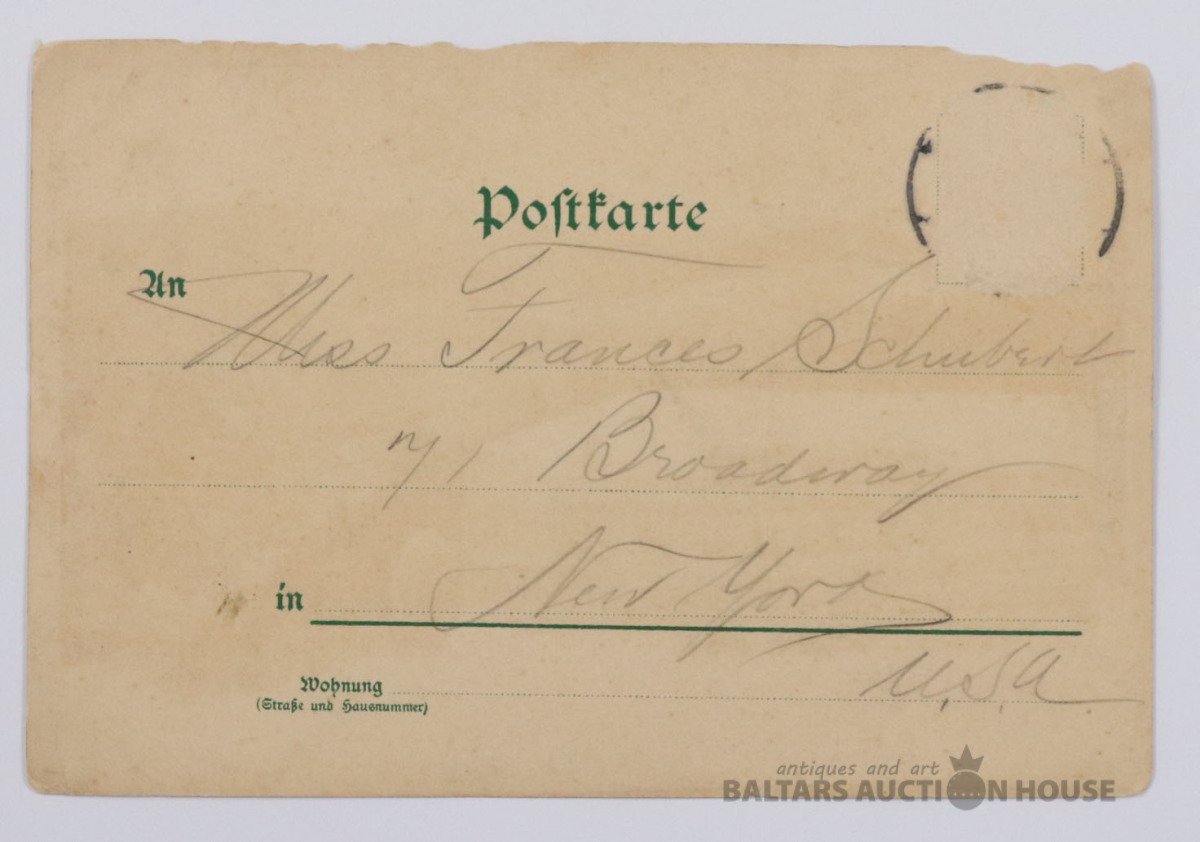 Postkarte
An
Miss Frances Schubert
71 Broadway
in New York
U.S.A
Wohnung
(Straße und Hausnummer)
antiques and art
BALTARS AUCTION HOUSE